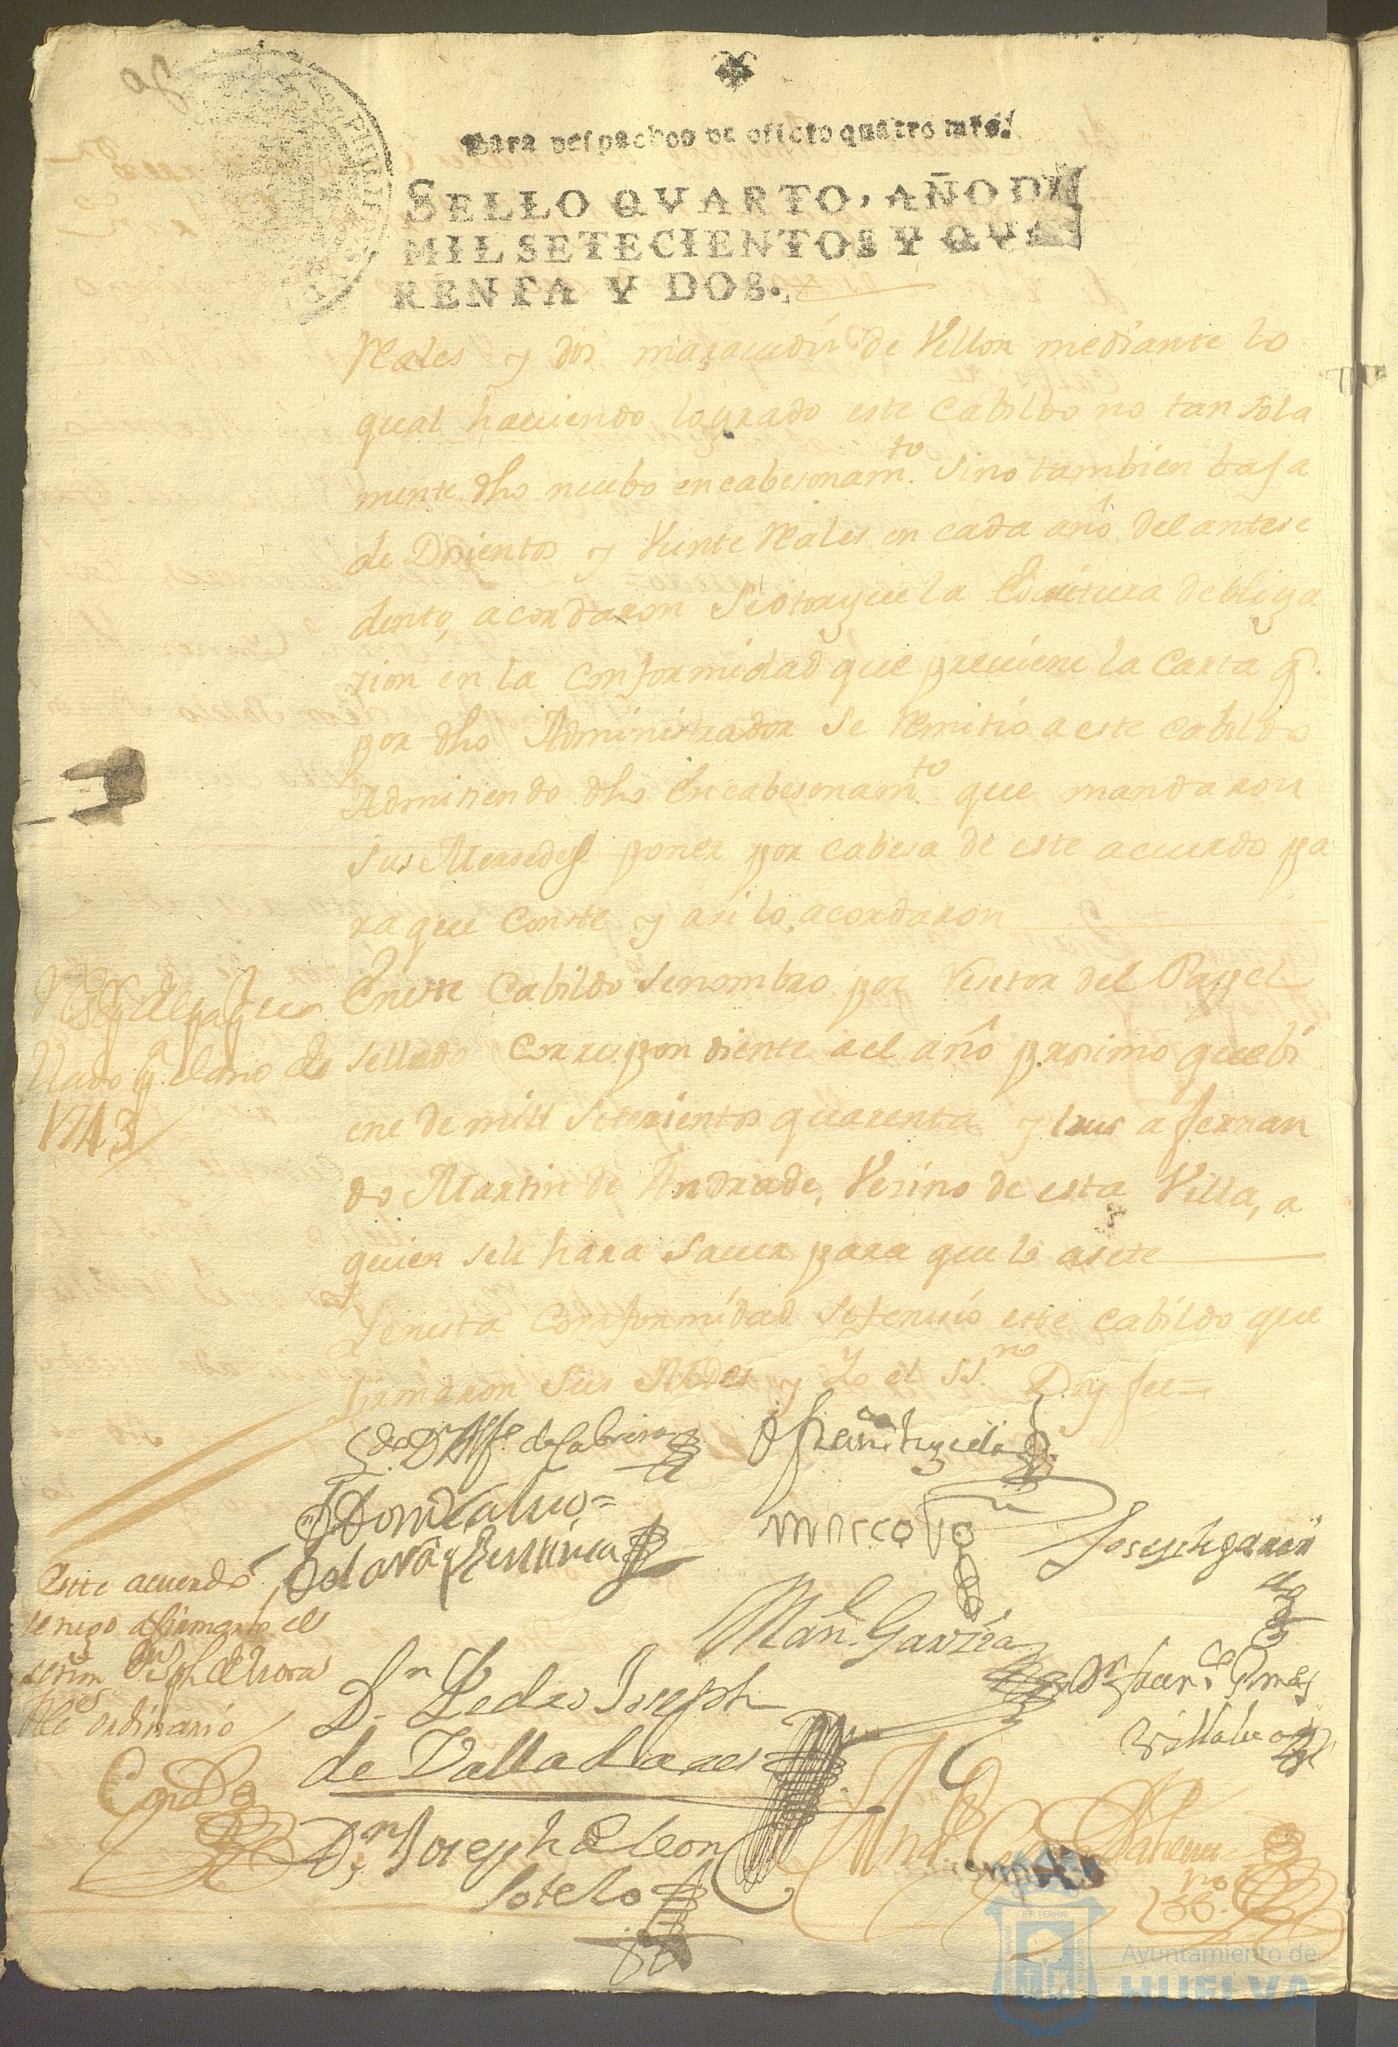 Para despachos de oficio quatro mrs.
SELLO QVARTO, AÑO DE
MIL SETECIENTOS Y QVA
RENTA Y DOS.
Reales y dos maravedis de Vellon mediante lo
qual haviendo logrado este Cabildo no tan sola
mente dho nuebo encabesonamto. sino tambien baja
de Dosientos y Veinte Reales en cada año del antese
dente, acordaron se otorgue la Escritura de obliga
zion en la conformidad que previene la Carta q.
por dho Administrador se Remitio a este cabildo
Admitiendo dho Encabesonamto que mandaron
sus Mersedes poner por cabesa de este acuerdo pa
ra que conste y asi lo acordaron
En este Cabildo se nombro por Resetor del Papel
sellado correspondiente a el año proximo que bi
ene de mill setezientos quarenta y tres a fernan
do Martin de Andrade, Vesino de esta Villa, a
quien se le hara saver para que lo asete
Y en esta conformidad se fenesio este cabildo que
firmaron sus Mrdes y Yo el ssno Doy fee=
del pape
llado pa. el año de
1743
de Cabrera
Marcos
Joseph garcia
Man. Garzia
Dn Pedro Joseph
de Valladares
Dn Joseph de Leon
sotelo
Dn Fran.co Gomes
Villalva
Este acuerdo
se nego a firmarlo el
señor Dn Jph de
Alcde ordinario
Ayuntamiento de
HUELVA